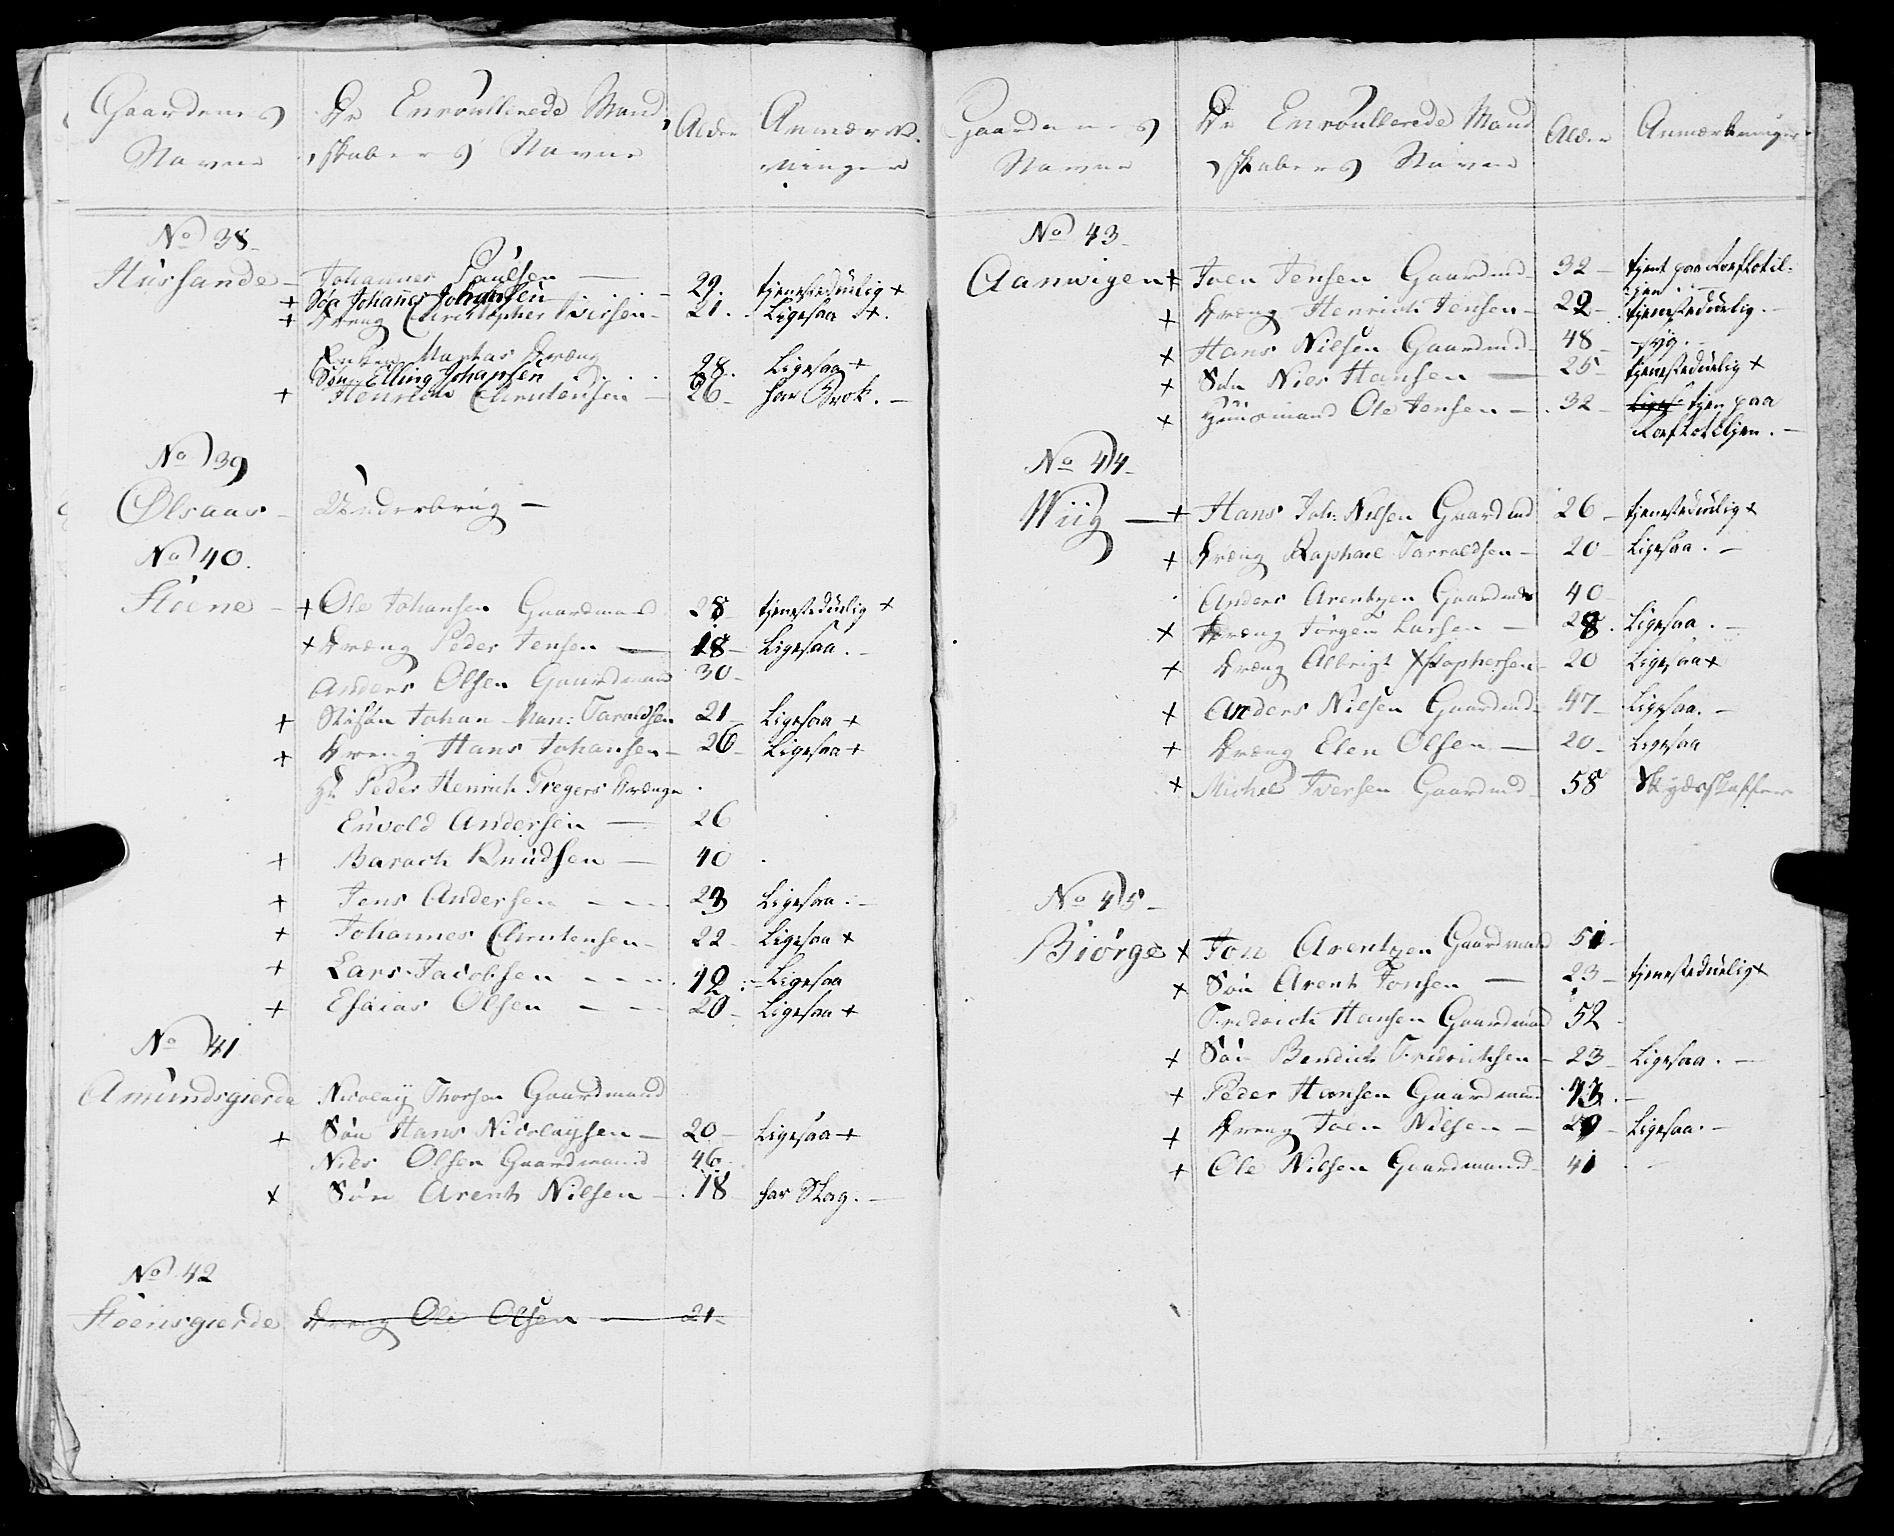 Gaardenes
Navne
De Enroullerede Mand
skabers Navne
Alder
Anmærk
ninger
No 38
Hussande
Johannes Paulsen
+ Søn Johanes Johansen 29. tienestedüelig +
+ Dreng Christopher Iversen 21. Ligesaa +.
Enken Marthas Dræng
Søn Elling Johansen 28. Ligesaa +
+ Henrich Christensen 26 har Brok.
No 39
Ølsaas
Underbrug
No 40.
Stoene
+ Ole Johansen Gaardmand 28 tienestedüelig +
+ Dræng Peder Jensen 18 Ligesaa.
Anders Olsen Gaardmand 30
+ Stifsøn Johan Taraldsen 21 Ligesaa +
+ Dreng Hans Johansen 26 Ligesaa +
Hr Peder Henrich Gregers Drænge
Envold Andersen 26
+ Barach Knudsen 40
+ Jens Andersen 23 Ligesaa
+ Johannes Christensen 22 Ligesaa +
+ Lars Jacobsen 19 Ligesaa
+ Esaias Olsen 20 Ligesaa +
No 41
Amundsgierde
Nicolay Thorsen Gaardmand
+ Søn Hans Nicolaysen 20 Ligesaa +
Niels Olsen Gaardmand 46
+ Søn Arent Nilsen 18 har Skag.
No 42
Stoensgierde
Dreng Ole Olsen 21
Gaardenes
Navne
De Enroullerede Mand
skabers Navne
Alder
Anmærkninger
No 43
Aanwigen
+ Joen Jensen Gaardmd 32 tient paa Roeflotil-
jen
+ Dræng Henrich Jensen 22 tienestedüelig.
+ Hans Nilsen Gaardmd 48 syg.
+ Søn Niels Hansen 25 tienestedüelig +
+ Huusmand Ole Jensen 32 Liges tjen paa
Roeflotiljen.
No 44
Wiig
+ Hans Joh: Nilsen Gaardmd 26 tienestedüelig +
+ Dræng Raphael Tarraldsen 20 Ligesaa.
Anders Arentzen Gaardmd 40
+ Dræng Jørgen Larsen 28. Ligesaa.
+ Dræng Albrigt Xstophersen 20 Ligesaa +
+ Anders Nilsen Gaardmd 47 Ligesaa.
+ Dræng Elen Olsen 20 Ligesaa
+ Michel Iversen Gaardmd 58 Skydsskaffer
No 45
Biørge
+ Jon Arentzen Gaardmand 51
+ Søn Arent Jonsen 23 tienestedüelig +
Fridrich Hansen Gaardmand 52
+ Søn Bendich Fridrichsen 23 Ligesaa.
+ Peder Hansen Gaardmand 43.
+ Dreng Joen Nilsen 29 Ligesaa.
+ Ole Nilsen Gaardmand 41